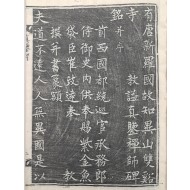 有唐新羅國故知異山雙谿
寺 教謚真鑒禪師碑
銘并序
前西國都統巡官承務郎
侍御史内供奉賜紫金魚
袋臣崔致遠奉 教
撰并書篆額
夫道不遠人人無異國是以